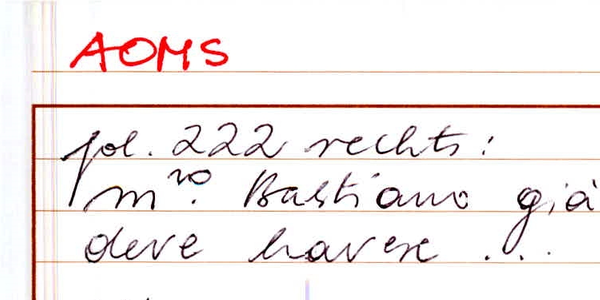 AOMS
fol. 222 rechts:
mro. Bastiano già
deve havere ...